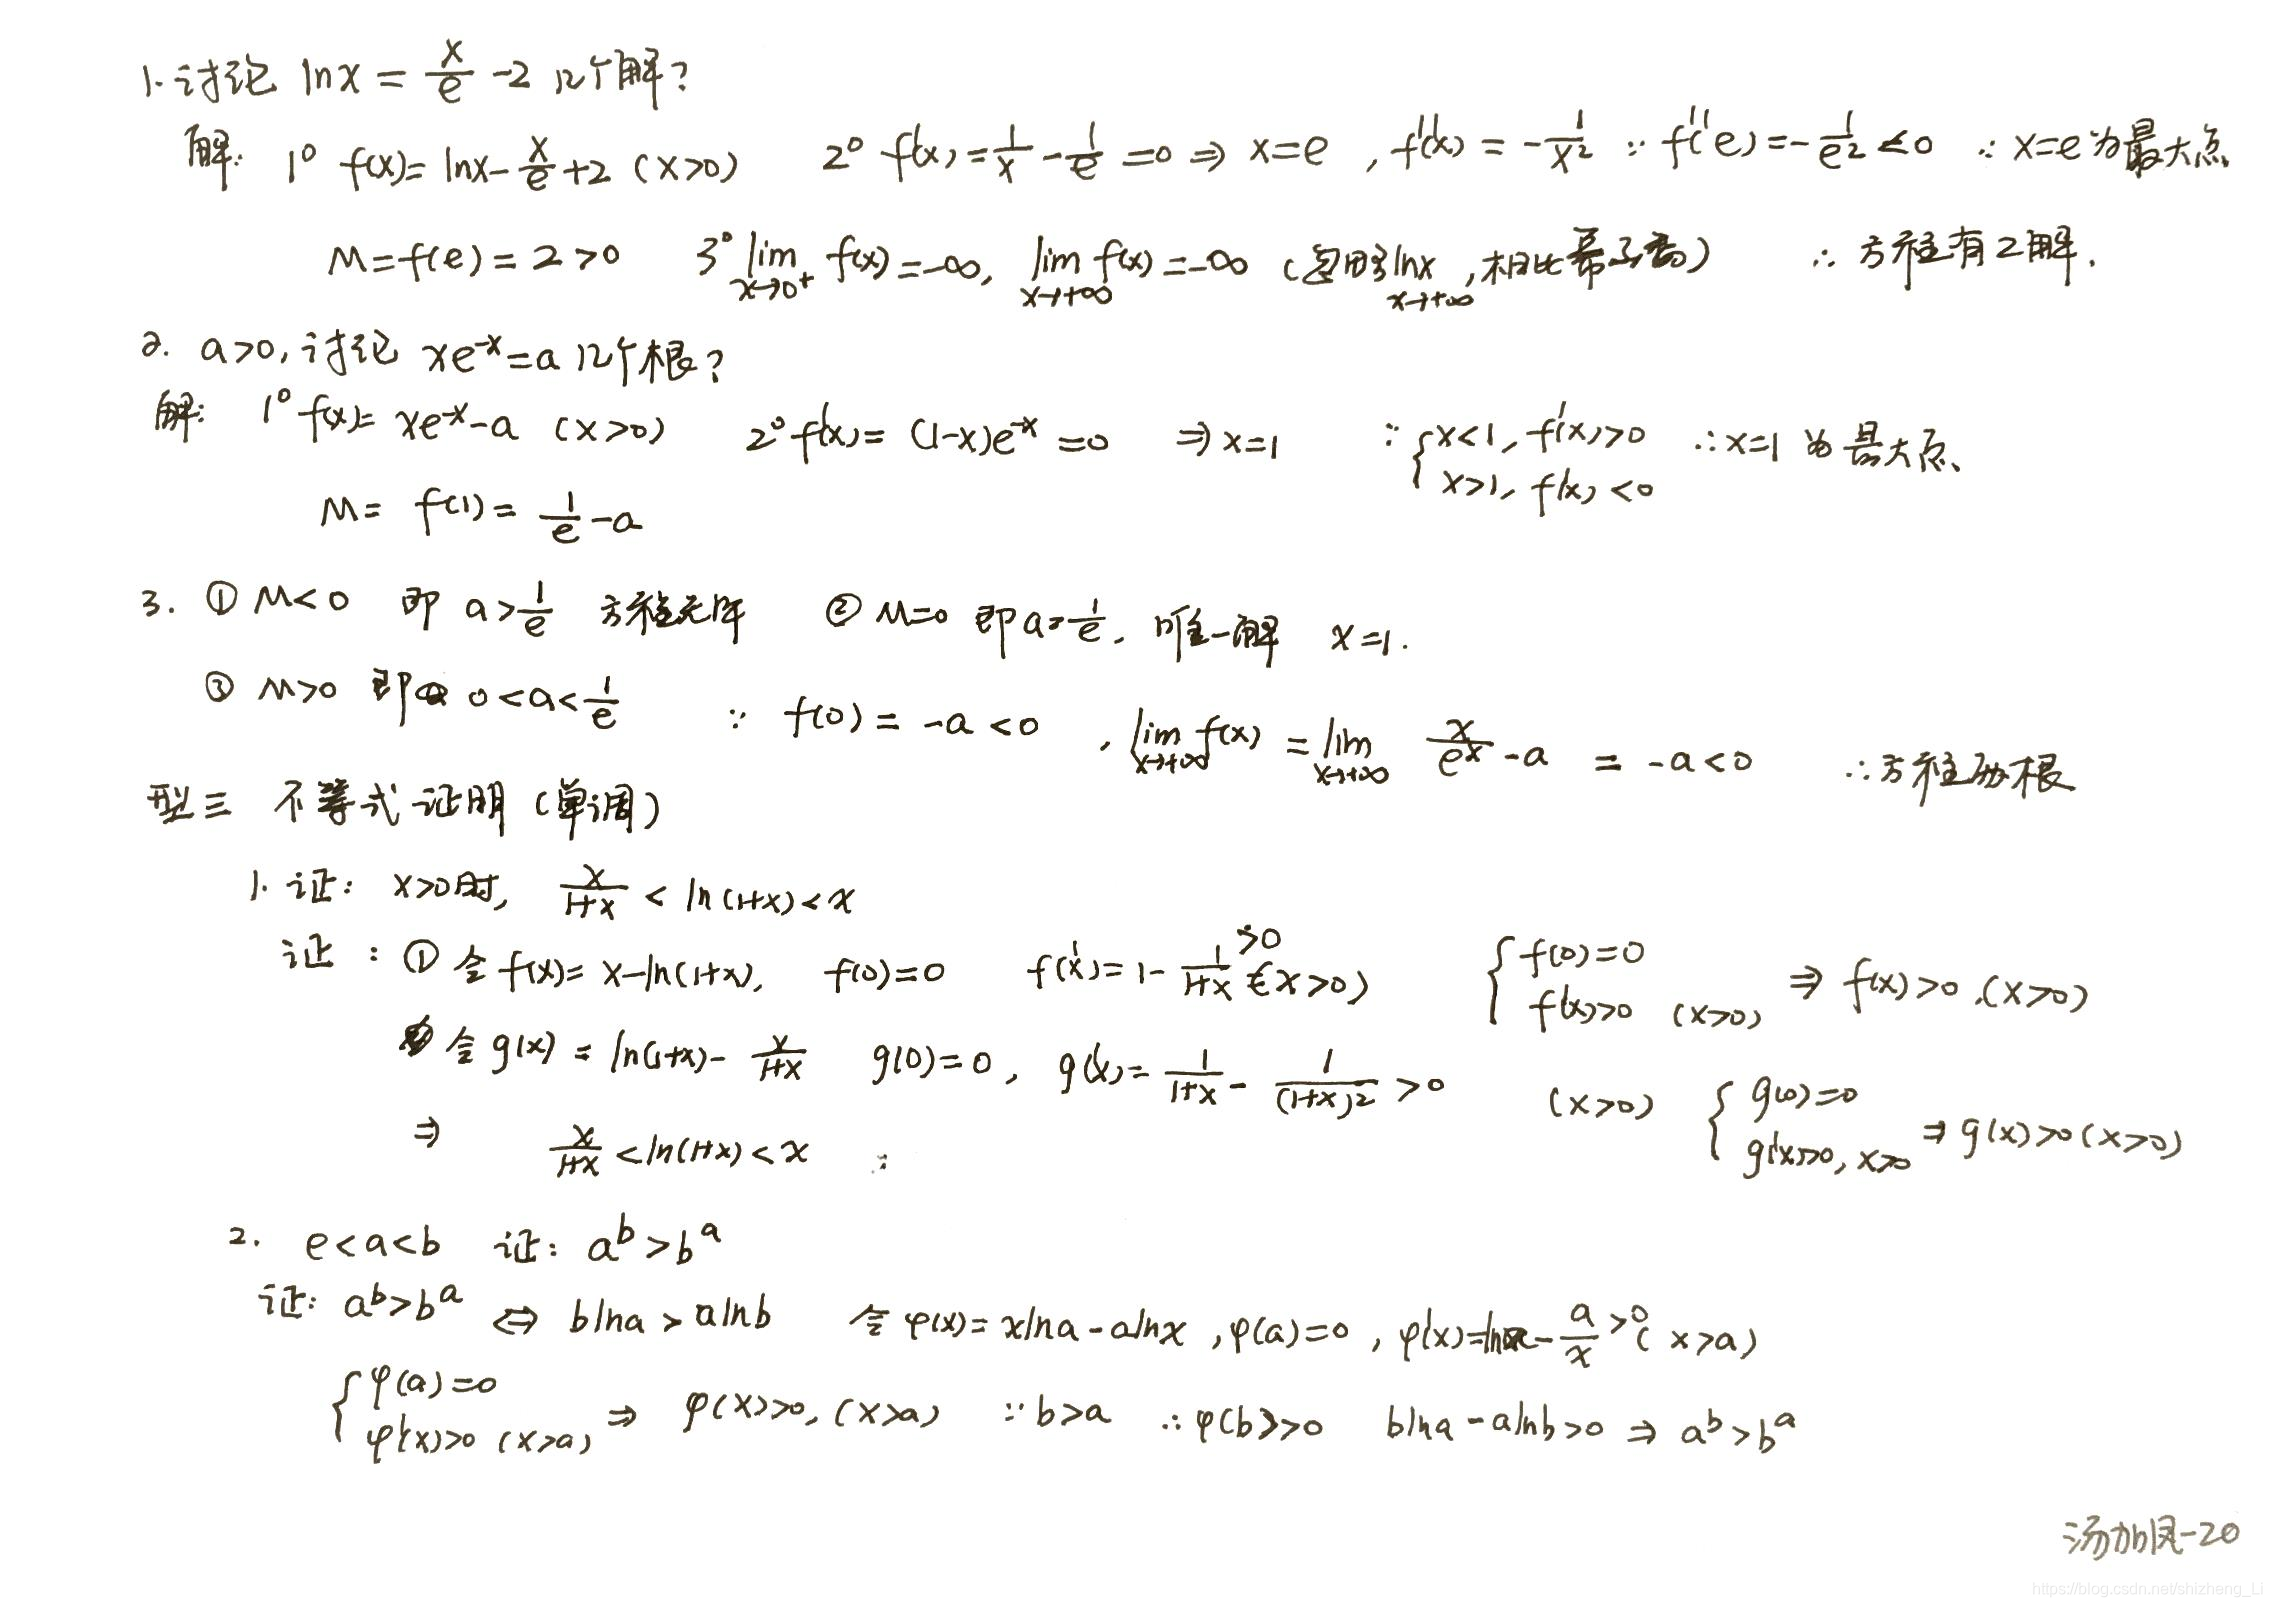 1. 讨论 lnx = x/e - 2 几个解?
解: 1° f(x) = lnx - x/e + 2 (x>0) 2° f'(x) = 1/x - 1/e = 0 ⇒ x=e , f''(x) = -1/x² ∵ f''(e) = -1/e² < 0 ∴ x=e为最大点
M = f(e) = 2 > 0 3° lim x→0+ f(x) = -∞, lim x→+∞ f(x) = -∞ (忽略 lnx x→+∞, 相比幂) ∴ 方程有2解.
2. a>0, 讨论 xe^-x = a 几个根?
解: 1° f(x) = xe^-x - a (x>0) 2° f'(x) = (1-x)e^-x = 0 ⇒ x=1 ∵ { x<1, f'(x)>0 ∴ x=1 为最大点
x>1, f'(x)<0
M = f(1) = 1/e - a
3. ① M<0 即 a > 1/e 方程无解 ② M=0 即 a = 1/e, 唯一解 x=1.
③ M>0 即 0<a<1/e ∵ f(0) = -a < 0 , lim x→+∞ f(x) = lim x→+∞ x/e^x - a = -a < 0 ∴ 方程两根
型三 不等式证明 (单调)
1. 证: x>0时, x/(1+x) < ln(1+x) < x
证: ① 令 f(x) = x - ln(1+x), f(0)=0 f'(x) = 1 - 1/(1+x) >0 (x>0) { f(0)=0 f'(x)>0 (x>0) ⇒ f(x)>0, (x>0)
令 g(x) = ln(1+x) - x/(1+x) g(0)=0, g'(x) = 1/(1+x) - 1/(1+x)² > 0 (x>0) { g(0)=0 g'(x)>0, x>0 ⇒ g(x)>0 (x>0)
⇒ x/(1+x) < ln(1+x) < x
2. e<a<b 证: a^b > b^a
证: a^b > b^a ⇔ blna > alnb 令 φ(x) = xlna - alnx, φ(a)=0, φ'(x) = lna - a/x >0 (x>a)
{ φ(a)=0 φ'(x)>0 (x>a) ⇒ φ(x)>0, (x>a) ∵ b>a ∴ φ(b)>0 blna - alnb > 0 ⇒ a^b > b^a
汤加凤-20
https://blog.csdn.net/shizheng_Li